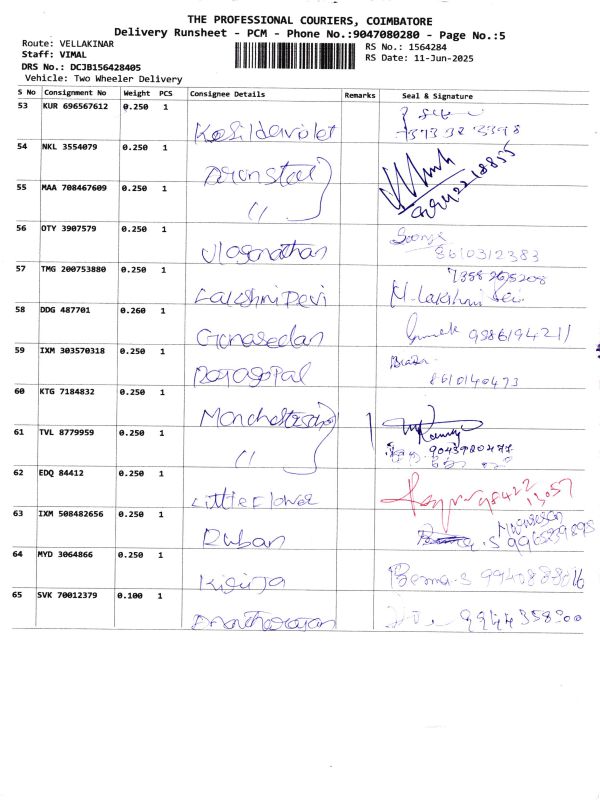 THE PROFESSIONAL COURIERS, COIMBATORE
Delivery Runsheet - PCM - Phone No.:9047080280 - Page No.:5
Route: VELLAKINAR
Staff: VIMAL
DRS No.: DCJB156428405
Vehicle: Two Wheeler Delivery
RS No.: 1564284
RS Date: 11-Jun-2025
S No Consignment No Weight PCS Consignee Details Remarks Seal & Signature
53 KUR 696567612 0.250 1
54 NKL 3554079 0.250 1
55 MAA 708467609 0.250 1 "
56 OTY 3907579 0.250 1 Ulaganathan 8610312383
57 TMG 200753880 0.250 1 Lakshmi Devi M. Lakshmi
58 DDG 487701 0.260 1 Gunasedan
59 IXM 303570318 0.250 1 Rajagopal 8610140473
60 KTG 7184832 0.250 1
61 TVL 8779959 0.250 1 " 9043980477
62 EDQ 84412 0.250 1 Little Flower 98422 13057
63 IXM 508482656 0.250 1 Ruban
64 MYD 3064866 0.250 1
65 SVK 70012379 0.100 1